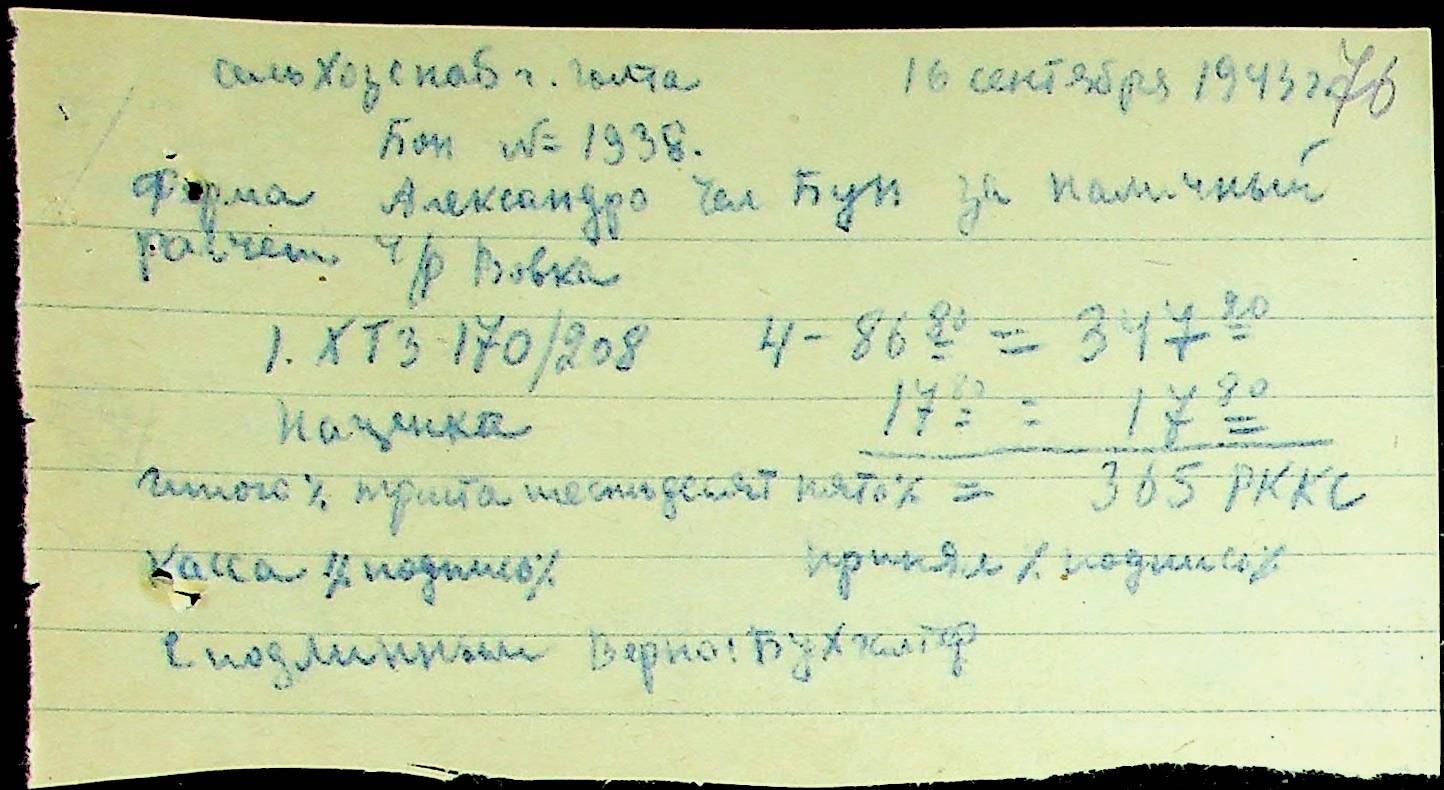 сельхозснаб г. Голта 16 сентября 1943 г. 76
Бон № 1938.
Ферма Александро Чал Бун за наличный
расчет ч/р Вовка
1. ХТЗ 170/208 4 - 86 80 = 347 20
Наценка 17 80 = 17 80
Итого % триста шестьдесят пять % = 365 РККС
Касса % подпись % принял % подпись %
С подлинным Верно: Бухгалтер